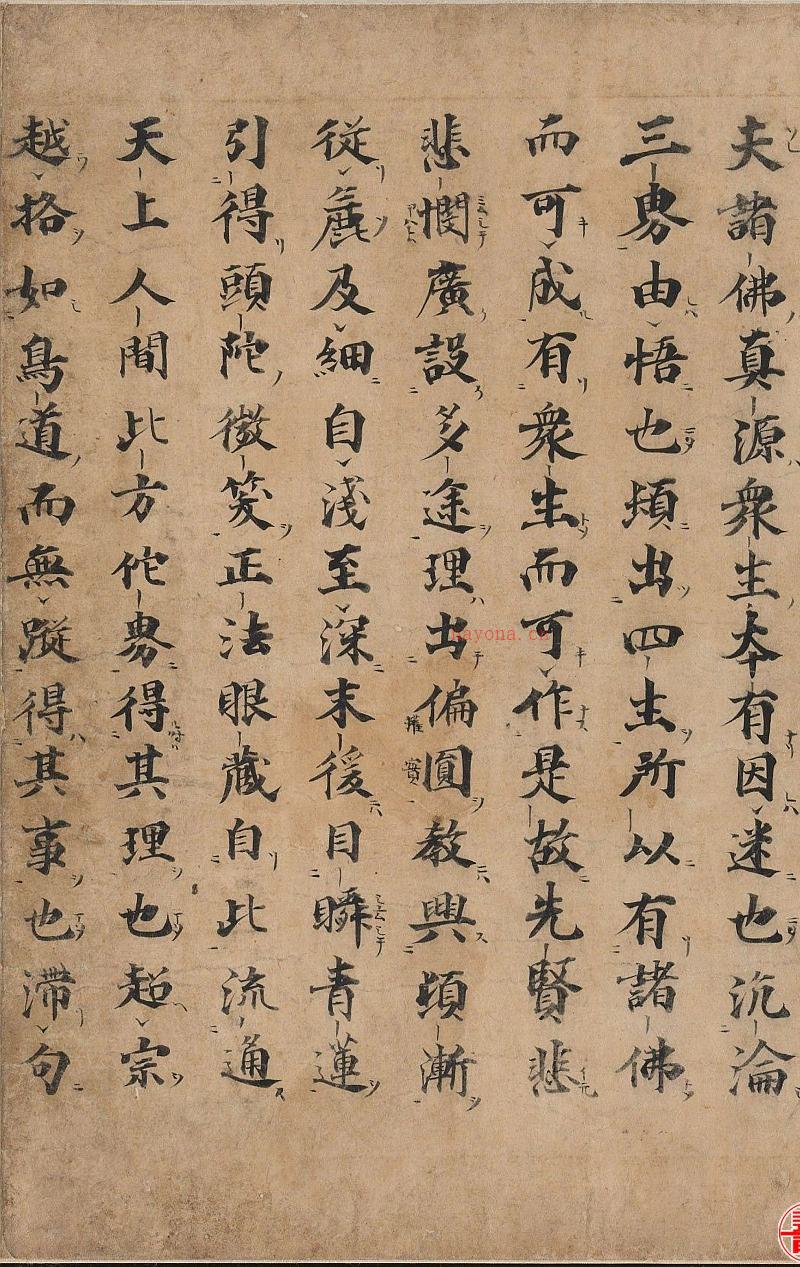 夫諸佛真源衆生本有因迷也沉淪
三界由悟也頓出四生所以有諸佛
而可成有衆生而可作是故先賢悲
悲憫廣設多途理出偏圓教興頓漸
權實
從麁及細自淺至深末後目瞬青蓮
引得頭陀微笑正法眼藏自此流通
天上人間此方佗界得其理也超宗
越格如鳥道而無蹤得其事也滯句
nayona.cn